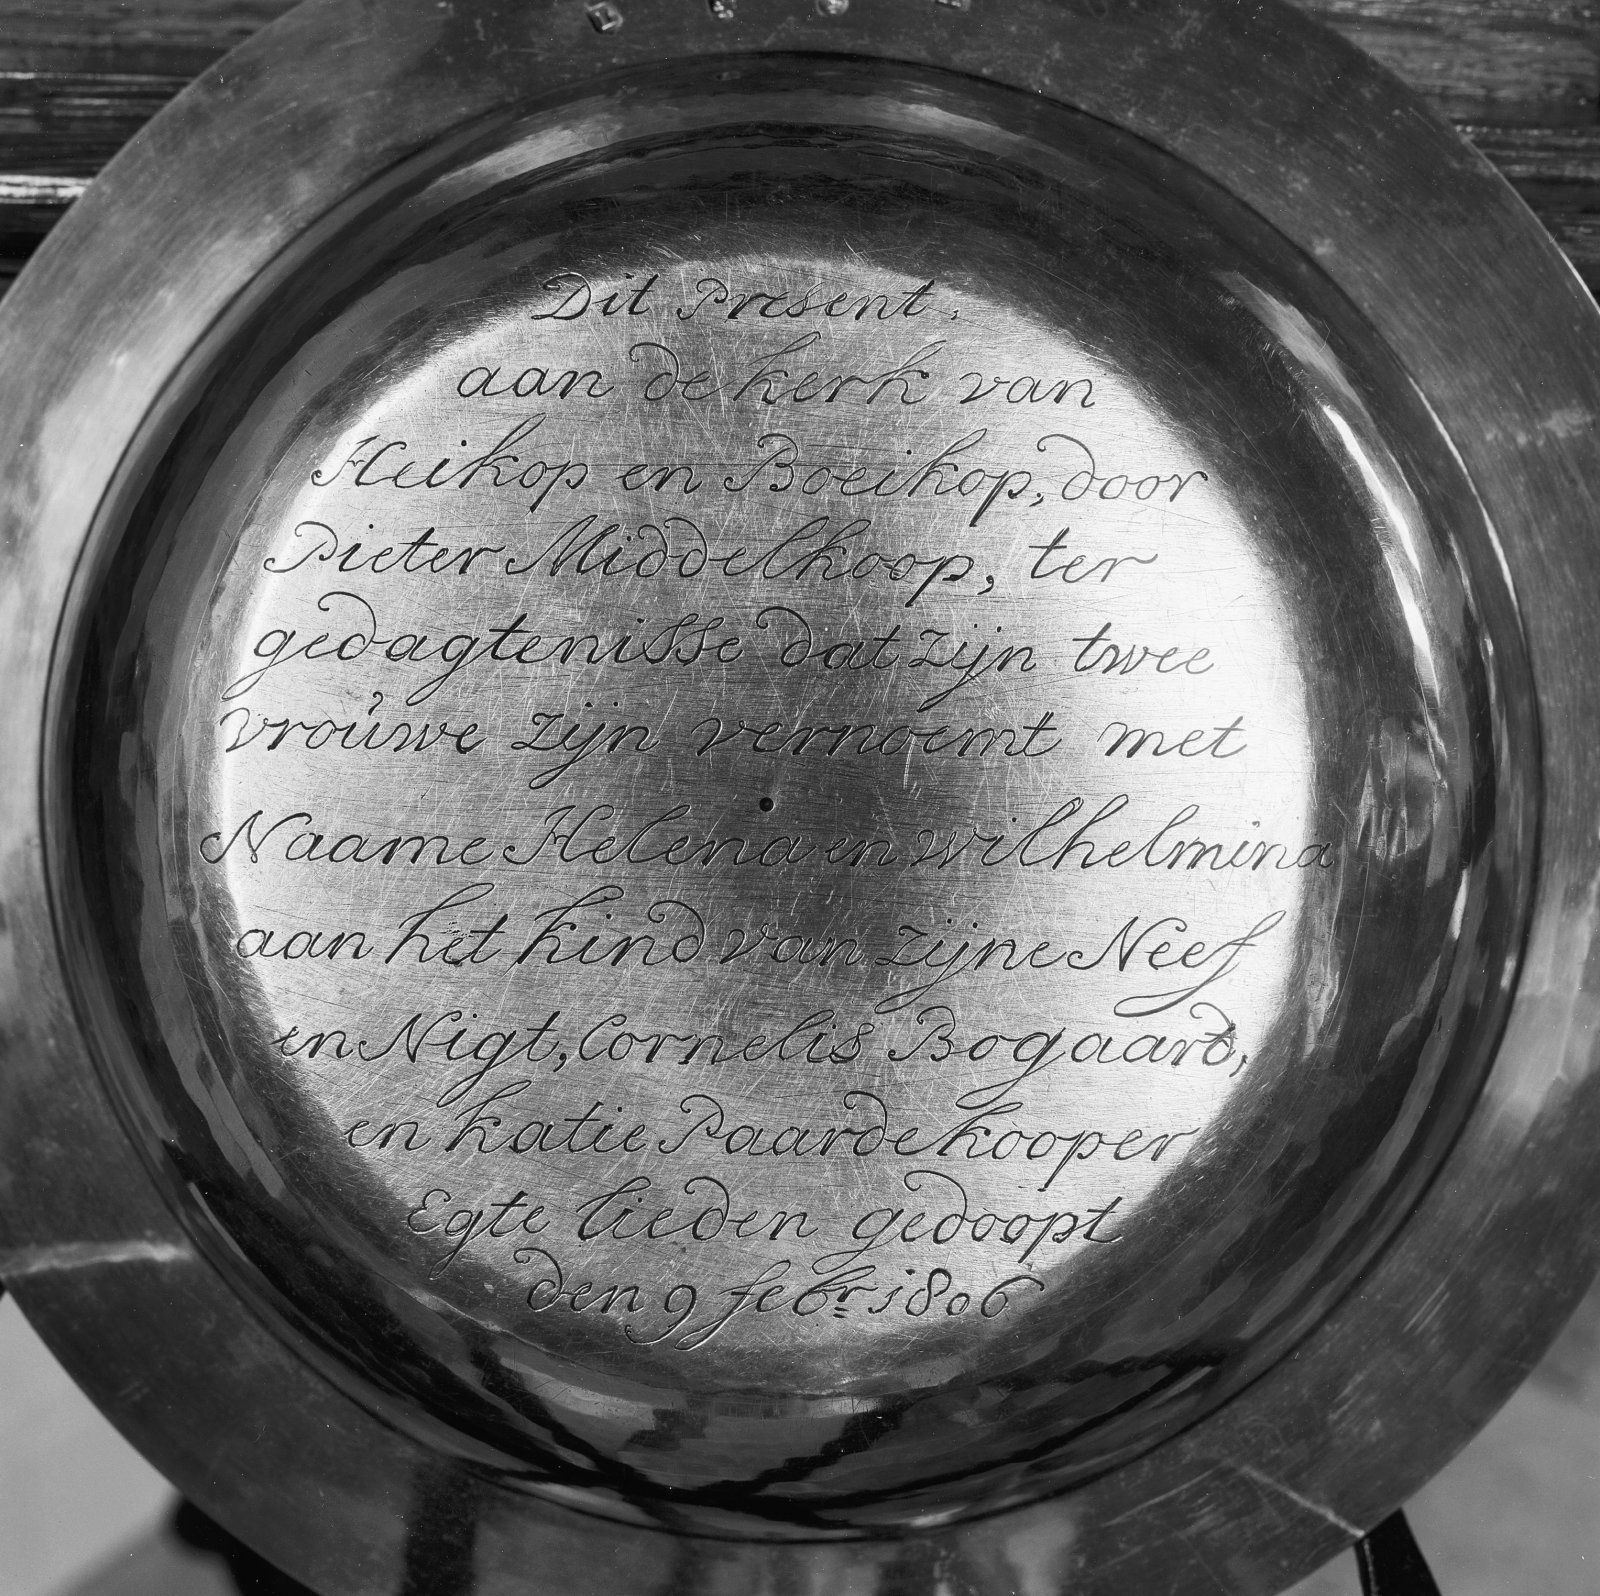 Dit Present,
aan de kerk van
Heikop en Boeikop, door
Pieter Middelkoop, ter
gedagtenisse dat zijn twee
vroúwe zijn vernoemt met
Naame Helena en wilhelmina
aan het kind van zijne Neef
en Nigt, Cornelis Bogaard,
en katie Paardekooper
Egte lieden gedoopt
den 9 febr 1806